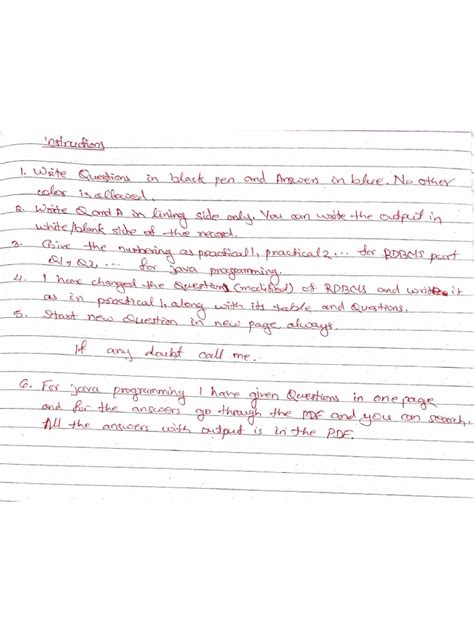 Instructions
1. Write Questions in black pen and Answers in blue. No other
color is allowed.
2. Write Q and A in lining side only. You can write the output in
white/blank side of the record.
3. Give the numbering as practical 1, practical 2 ... for RDBMS part
Q1, Q2, ... for java programming.
4. I have changed the Questions (modified) of RDBMS and write it
as in practical 1, along with its table and Questions.
5. Start new Question in new page always.
If any doubt call me.
6. For java programming I have given Questions in one page
and for the answers go through the PDF and you can search.
All the answers with output is in the PDF.